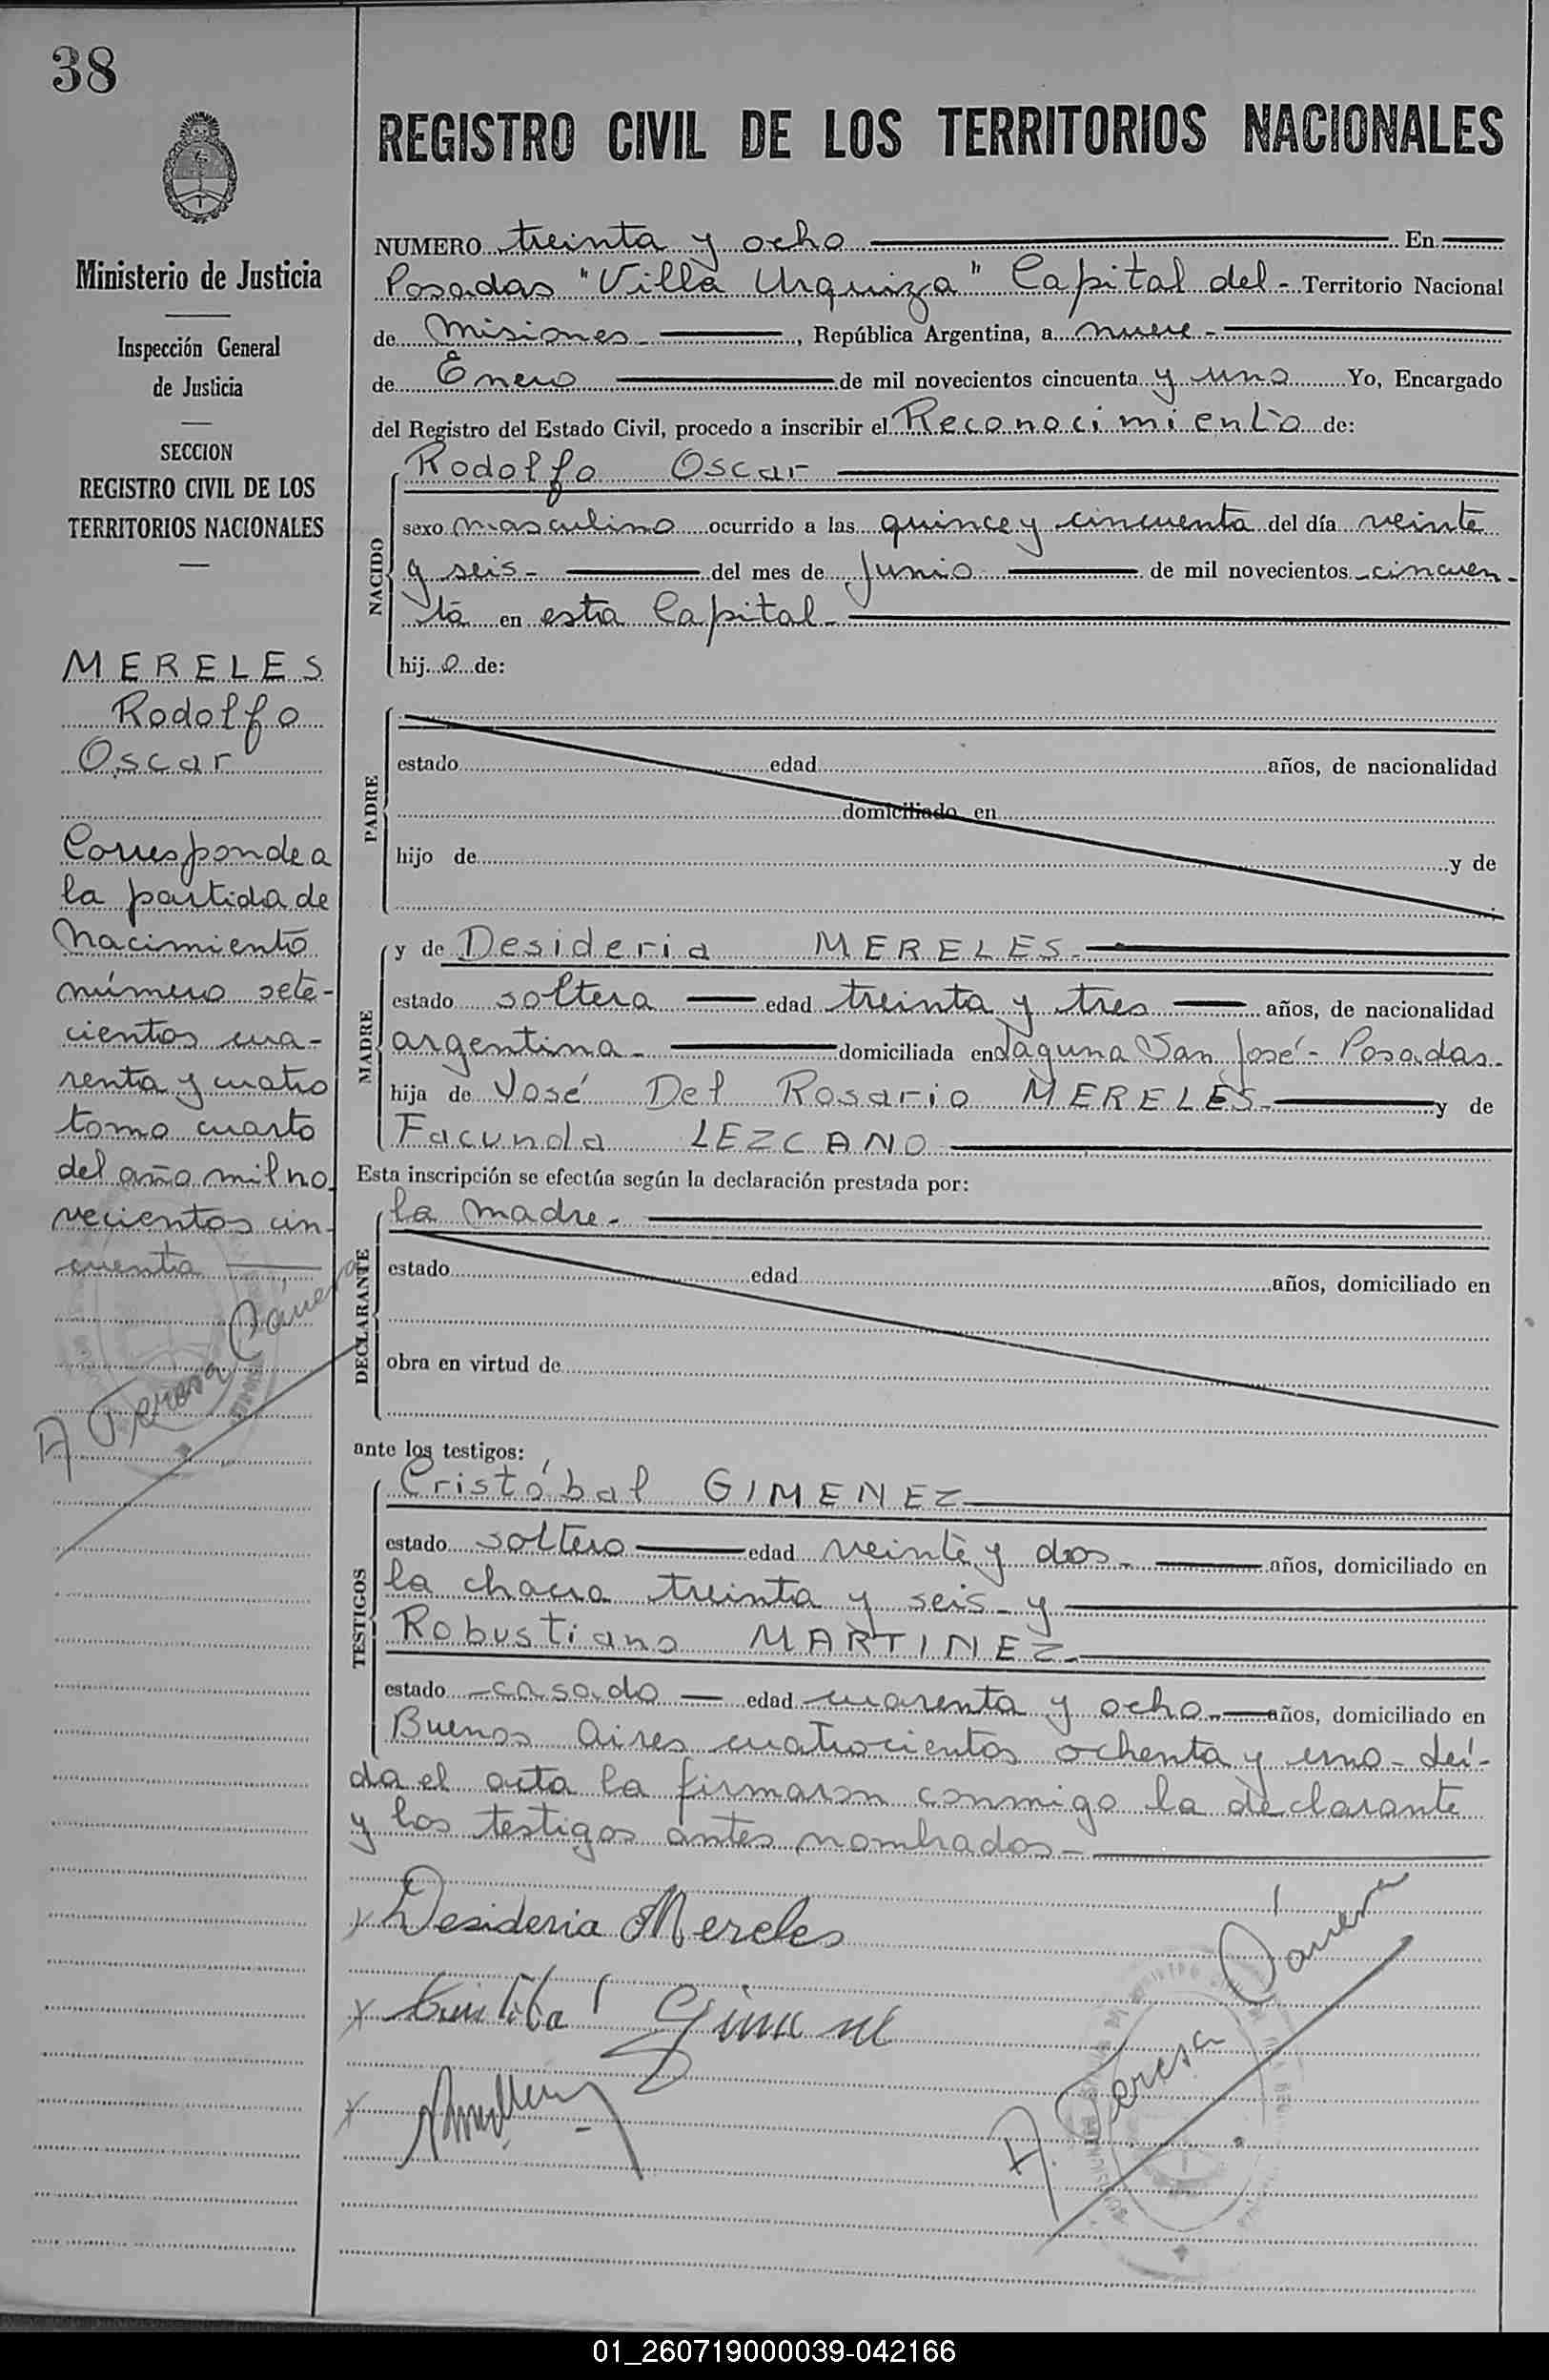 38
REGISTRO CIVIL DE LOS TERRITORIOS NACIONALES
Ministerio de Justicia
Inspección General
de Justicia
SECCION
REGISTRO CIVIL DE LOS
TERRITORIOS NACIONALES
MERELES
Rodolfo
Oscar
Corresponde a
la partida de
Nacimiento
número sete-
cientos cua-
renta y cuatro
tomo cuarto
del año mil no
vecientos cin-
cuenta
A Teresa
NUMERO treinta y ocho En
Posadas "Villa Urquiza" Capital del - Territorio Nacional
de Misiones - , República Argentina, a nueve -
de Enero de mil novecientos cincuenta y uno Yo, Encargado
del Registro del Estado Civil, procedo a inscribir el Reconocimiento de:
NACIDO
Rodolfo Oscar
sexo masculino ocurrido a las quince y cincuenta del día veinte
y seis - del mes de Junio de mil novecientos cincuen-
ta en esta Capital -
hij o de:
PADRE
estado edad años, de nacionalidad
domiciliado en
hijo de y de
MADRE
y de Desideria MERELES -
estado soltera edad treinta y tres años, de nacionalidad
argentina - domiciliada en Laguna San José - Posadas -
hija de José Del Rosario MERELES - y de
Facunda LEZCANO
Esta inscripción se efectúa según la declaración prestada por:
DECLARANTE
la madre -
estado edad años, domiciliado en
obra en virtud de
ante los testigos:
TESTIGOS
Cristóbal GIMENEZ
estado soltero edad veinte y dos - años, domiciliado en
la chacra treinta y seis - y
Robustiano MARTINEZ -
estado casado edad cuarenta y ocho - años, domiciliado en
Buenos Aires cuatrocientos ochenta y uno - Leí-
da el acta la firmaron conmigo la declarante
y los testigos antes nombrados -
x Desideria Mereles
x
x
A. Teresa
01_260719000039-042166